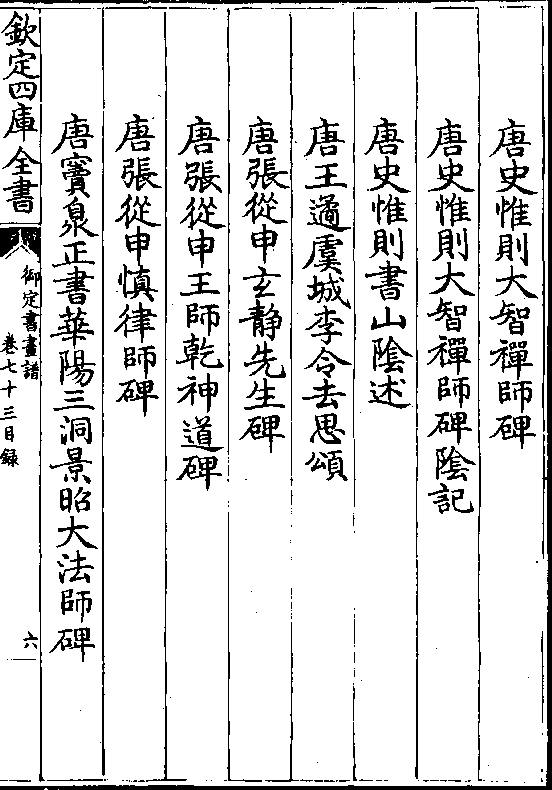 唐史惟則大智禪師碑
唐史惟則大智禪師碑陰記
唐史惟則書山陰述
唐王遹虞城李令去思頌
唐張從申玄静先生碑
唐張從申王師乾神道碑
唐張從申慎律師碑
唐竇泉正書華陽三洞景昭大法師碑
欽定四庫全書
御定書畫譜
卷七十三目録
六